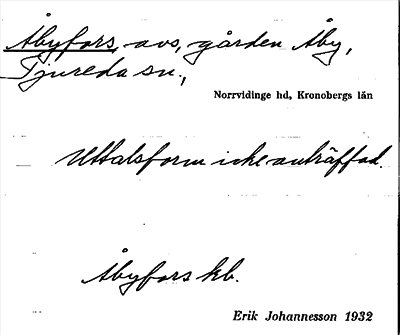 Åbyfors, avs, gården Åby,
Tjureda sn.,
Norrvidinge hd, Kronobergs län
Uttalsform icke anträffad
Åbyfors kb.
Erik Johannesson 1932